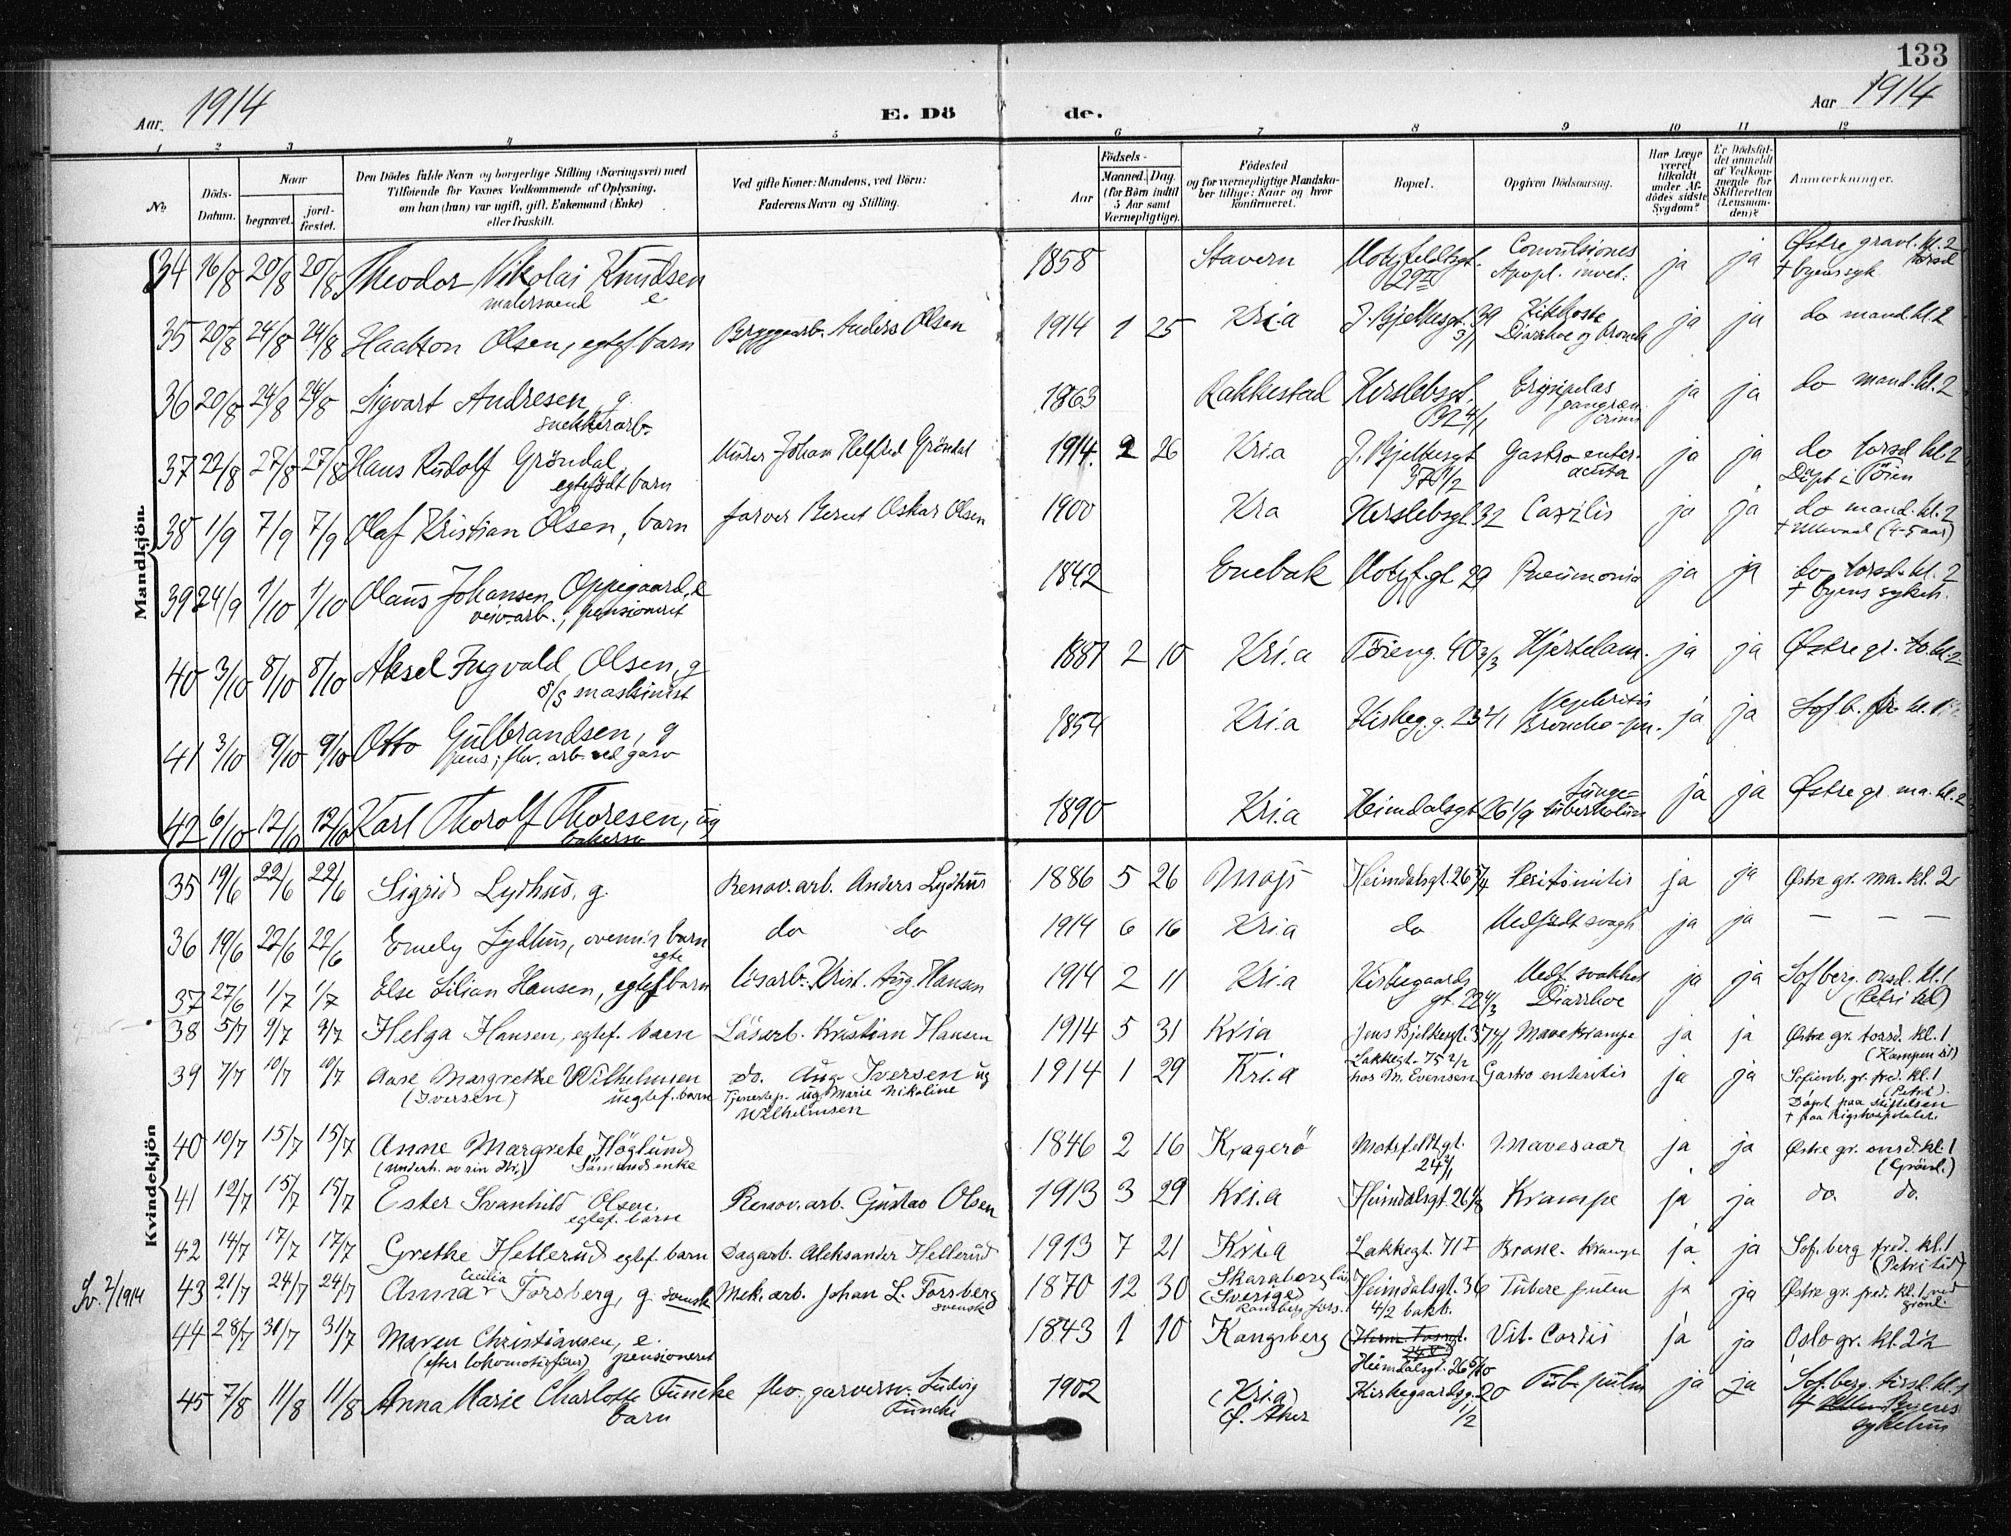 133
Aar 1914
E. Døde.
Aar 1914
1 2 3 4 5 6 7 8 9 10 11 12
No.
Døds-Datum.
Naar
begravet.
jord-fæstet.
Den Dødes fulde Navn og borgerlige Stilling (Næringsvei) med
Tilføiende for Voxnes Vedkommende af Oplysning,
om han (hun) var ugift, gift, Enkemand (Enke)
eller fraskilt.
Ved gifte Koner: Mandens, ved Børn:
Faderens Navn og Stilling.
Fødsels-
Aar
Maaned. Dag.
(for Børn indtil
5 Aar samt
Værnepligtige).
Fødested
og for værnepligtige Mandska-
ber tillige: Naar og hvor
konfirmeret.
Bopæl.
Opgiven Dødsaarsag.
Har Læge
været
tilkaldt
under Af-
dødes sidste
Sygdom?
Er Dødsfal-
det anmeldt
af Vedkom-
mende for
Skifteretten
(Lensman-
den)?
Anmerkninger.
Mandkjøn.
34 16/8 20/8 20/8 Theodor Nikolai Knudsen 1858 Stavern Motzfeldtsgt. Convulsiones ja ja Østre gravl. kl. 2
malersvend e 29 II Apopl. invet. + byens syk torsd
35 20/8 24/8 24/8 Haakon Olsen, egtef. barn Bryggearb. Anders Olsen 1914 1 25 Kri.a J. Bjelkesgt. 39 Kikhoste ja ja do mand. kl. 2
3/1 Diarrhoe og Bronch
36 20/8 24/8 24/8 Sigvart Andresen, g. 1863 Rakkestad Herslebsgt. Erysipelas ja ja do mand. kl. 2
snekkerarb. 32 4/1
37 22/8 27/8 27/8 Hans Rudolf Gröndal Murer Johan Helfred Gröndal 1914 2 26 Kri.a J. Bjelkesgt Gastro enter. ja ja do torsd kl 2
egtefödt barn 37 1/2 acuta Döpt i Töien
38 1/9 7/9 7/9 Olaf Kristian Olsen, barn farver Bernt Oskar Olsen 1900 Kra Herslebsgt. 32 ja ja do mand. kl. 2
+ Ullevaal (4-5 aar)
39 24/9 1/10 1/10 Olaus Johansen Oppegaard, e 1842 Enebak Motzf.gt 29 Pneumonia ja ja do torsd. kl. 2
veiv.arb., pensioneret + byens sykeh.
40 3/10 8/10 8/10 Aksel Ingvald Olsen, g 1887 2 10 Kri.a Töieng. 40 3/3 Hjertelam. ja ja Østre gr. to. kl. 2
s/s maskinist
41 3/10 9/10 9/10 Otto Gulbrandsen, g 1854 Kri.a Kirkeg.g. 23 4/1 Nephritis ja ja Sof b. fr. kl. 1
pens., flv. arb. ved gasv Broncho-pn.
42 6/10 12/10 12/10 Karl Thorolf Thoresen, ug 1890 Kri.a Heimdalsgt 26 1/9 Lunge- ja ja Østre gr. ma. kl. 2
bakersv tuberkulose
Kvindekjön
35 19/6 22/6 22/6 Sigrid Lydhus, g. Renov. arb. Anders Lydhus 1886 5 26 Moss Heimdalsgt. 26 5/4 Peritonitis ja ja Østre gr. ma. kl. 2
36 19/6 22/6 22/6 Emely Lydhus, ovennvs barn do do 1914 6 16 Kri.a do Medfødt svagh ja ja — — —
egte
37 27/6 1/7 1/7 Else Lilian Hansen, egtef barn lösarb. Krist. Aug. Hansen 1914 2 11 Kri.a Kirkegaards Medf. svakhet ja ja Sofberg. onsd. kl. 1
gt. 22 4/3 Diarrhoe (Petri kl)
38 5/7 9/7 9/7 Helga Hansen, egtef. barn Lösarb. Kristian Hansen 1914 5 31 Kria Jens Bjelkesgt. 37 4/1 Mavekrampe ja ja Østre gr. torsd. kl. 1
(Kampen tid)
39 7/7 10/7 10/7 Aase Margrethe Wilhelmsen do. Aug Iversen ug 1914 1 29 Kri.a Lakkegt. 75 2/2 Gastro enteritis ja ja Sofienb. gr. fred. kl. 1
(Iversen) uegtef. barn Tjenestep. ug Marie Nikoline hos M. Evensen (Petri).
Wilhelmsen Döpt paa stiftelsen
+ paa Rigshospitalet.
40 10/7 15/7 15/7 Anne Margrete Höglund 1846 2 16 Kragerö Motzfeldtgt. Mavesaar ja ja Østre gr. onsd. kl. 1
(underh. av sin dtr.) Sömands enke 24 2/1 (Grönl.)
41 12/7 15/7 15/7 Ester Svanhild Olsen Renov. arb. Gustav Olsen 1913 3 29 Kri.a Heimdalsgt. 26 Krampe ja ja do do.
egtef. barn
42 14/7 17/7 17/7 Grethe Hellerud egtef. barn Dagarb. Aleksander Hellerud 1913 7 21 Kri.a Lakkegt. 71 I Bronc. krampe ja ja Sof.berg fred. kl. 1
(Petri tid)
Sv. 2/1914 43 21/7 24/7 24/7 Anna Cecilia Forsberg, g. svensk Mek. arb. Johan L. Forsberg 1870 12 30 Skaraborg län Heimdalsgt. 36 Tuberc pulm ja ja Østre gr. fred. kl. 1 ved
svensk (Sverige) 4/2 bakb. Grönl.
44 28/7 31/7 31/7 Maren Christiansen, e. 1843 1 10 Kongsberg Vit. Cordis ja ja Oslo gr. kl. 2 1/2
(efter lokomotivförer) pensioneret Heimdalsgt. 26 5/10
45 7/8 11/8 11/8 Anna Marie Charlotte Funcke flv. garversv. Ludvig 1902 (Kri.a) Kirkegaardsg. 20 Tub. pulm ja ja Sof.berg. tirsd. kl. 1
barn Funcke Ø. Aker 1/2 + Byens
sykehus